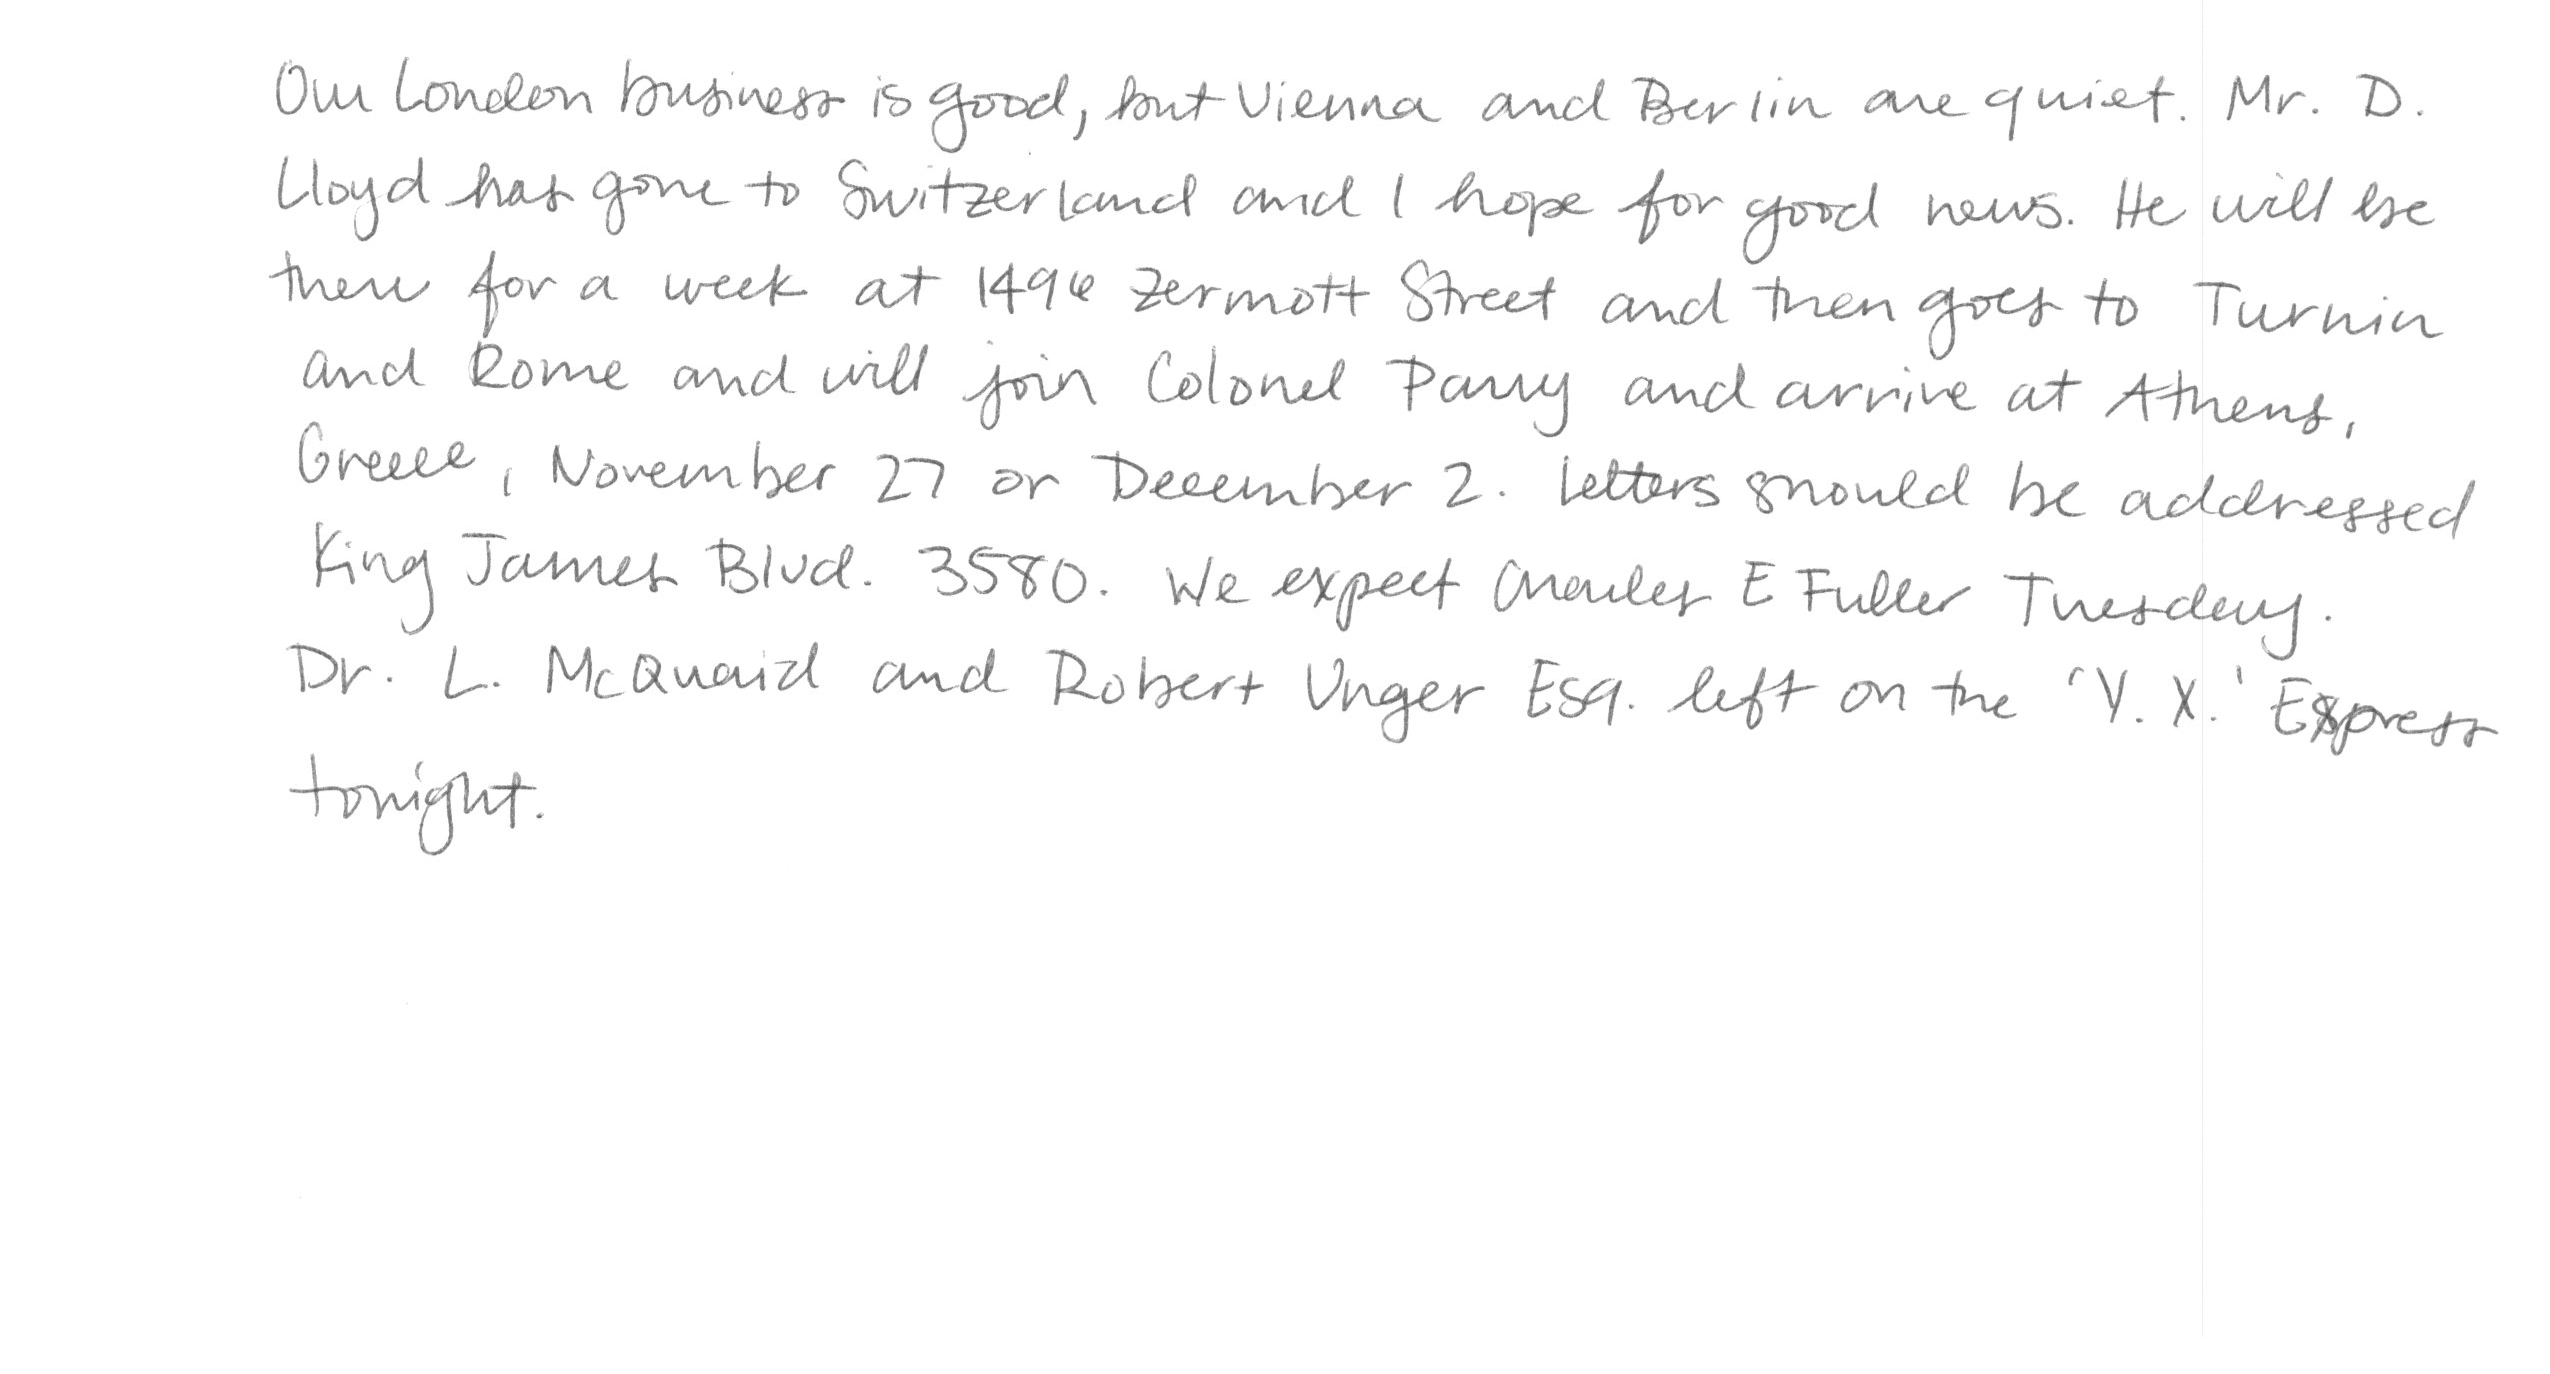 Our London business is good, but Vienna and Berlin are quiet. Mr. D.
Lloyd has gone to Switzerland and I hope for good news. He will be
there for a week at 1496 Zermott Street and then goes to Turnin
and Rome and will join Colonel Parry and arrive at Athens,
Greece, November 27 or December 2. Letters should be addressed
King James Blvd. 3580. We expect Charles E Fuller Tuesday.
Dr. L. McQuaid and Robert Unger Esq. left on the 'Y. X.' Express
tonight.